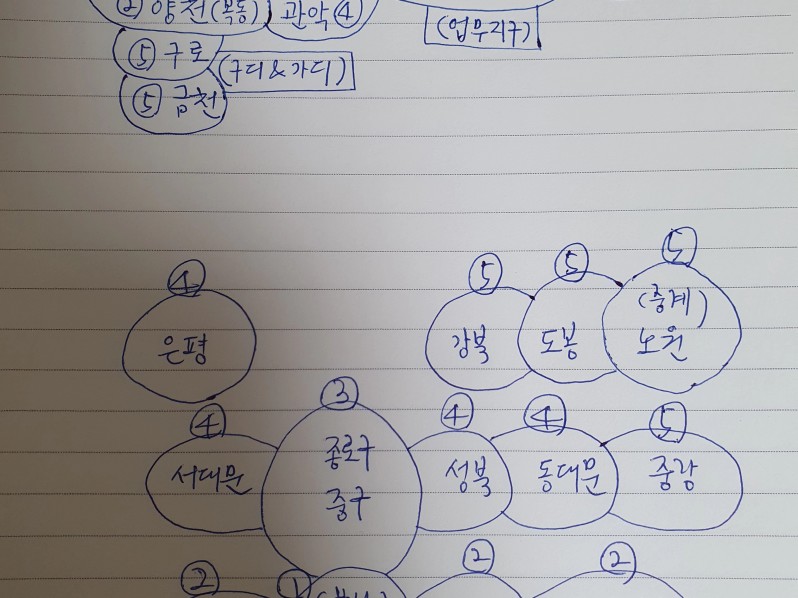 ② 양천(목동) 관악④
(업무지구)
⑤ 구로
(구디&가디)
⑤ 금천
④
은평
⑤
강북
⑤
도봉
⑤
(중계)
노원
④
서대문
③
종로구
중구
④
성북
④
동대문
⑤
중랑
②
①
②
②